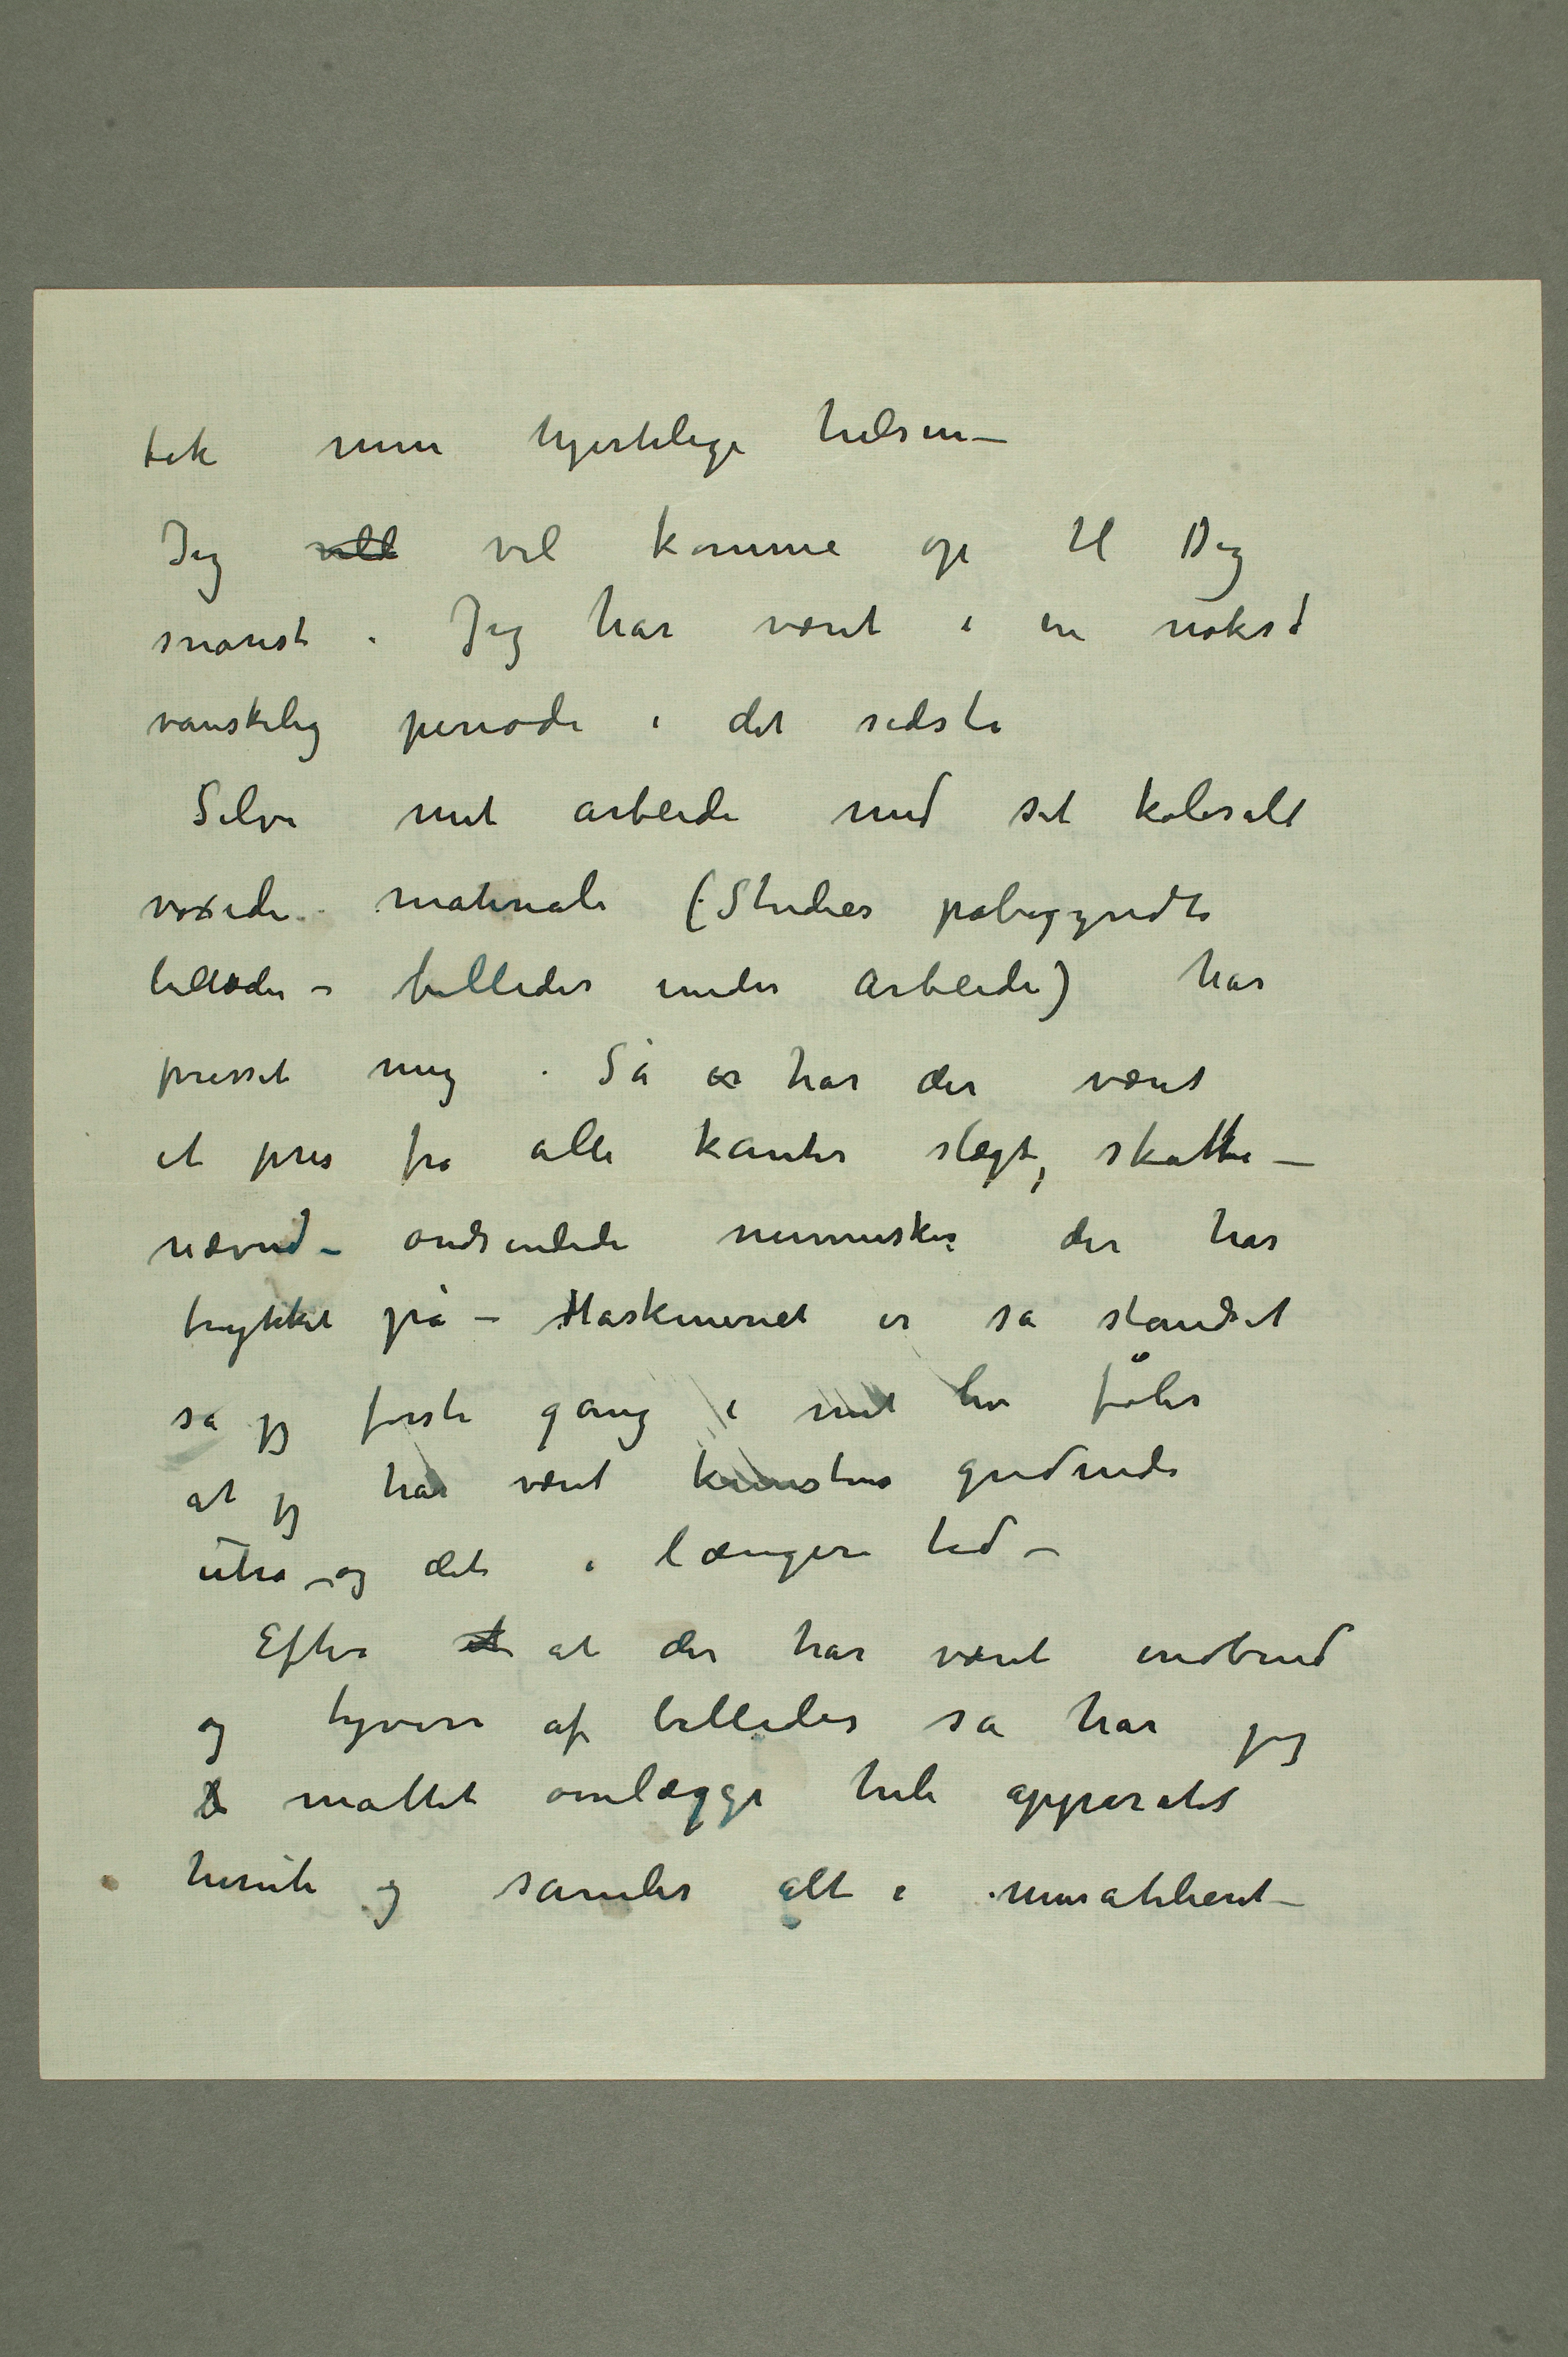 tek min hjertelige hilsen –
Jeg vild vil komme op til Dig
snarest. Jeg har været i en nokså
vanskelig periode i det sidste
Selve mit arbeide med sit kolosalt
voxede materiale (Studier påbegyndte
billeder – billeder under arbeide) har
presset mig. Så er har der været
et pres fra alle kanter slægt, skatte –
nævnd – åndsenlede mennesker der har
trykket på – Maskineriet er så standset
så jeg første gang i mit liv føler
at jeg har været kunstens gudinde
utro – og det i længere tid –
Efter et at der har været indbrud
og tyveri af billeder så har jeg
måttet omlægge hele apparatet
herute og samler alt i muratelieret –